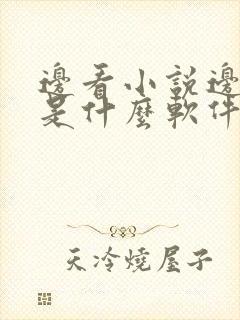 邊看小説邊
是什麼軟件
天冷燒屋子